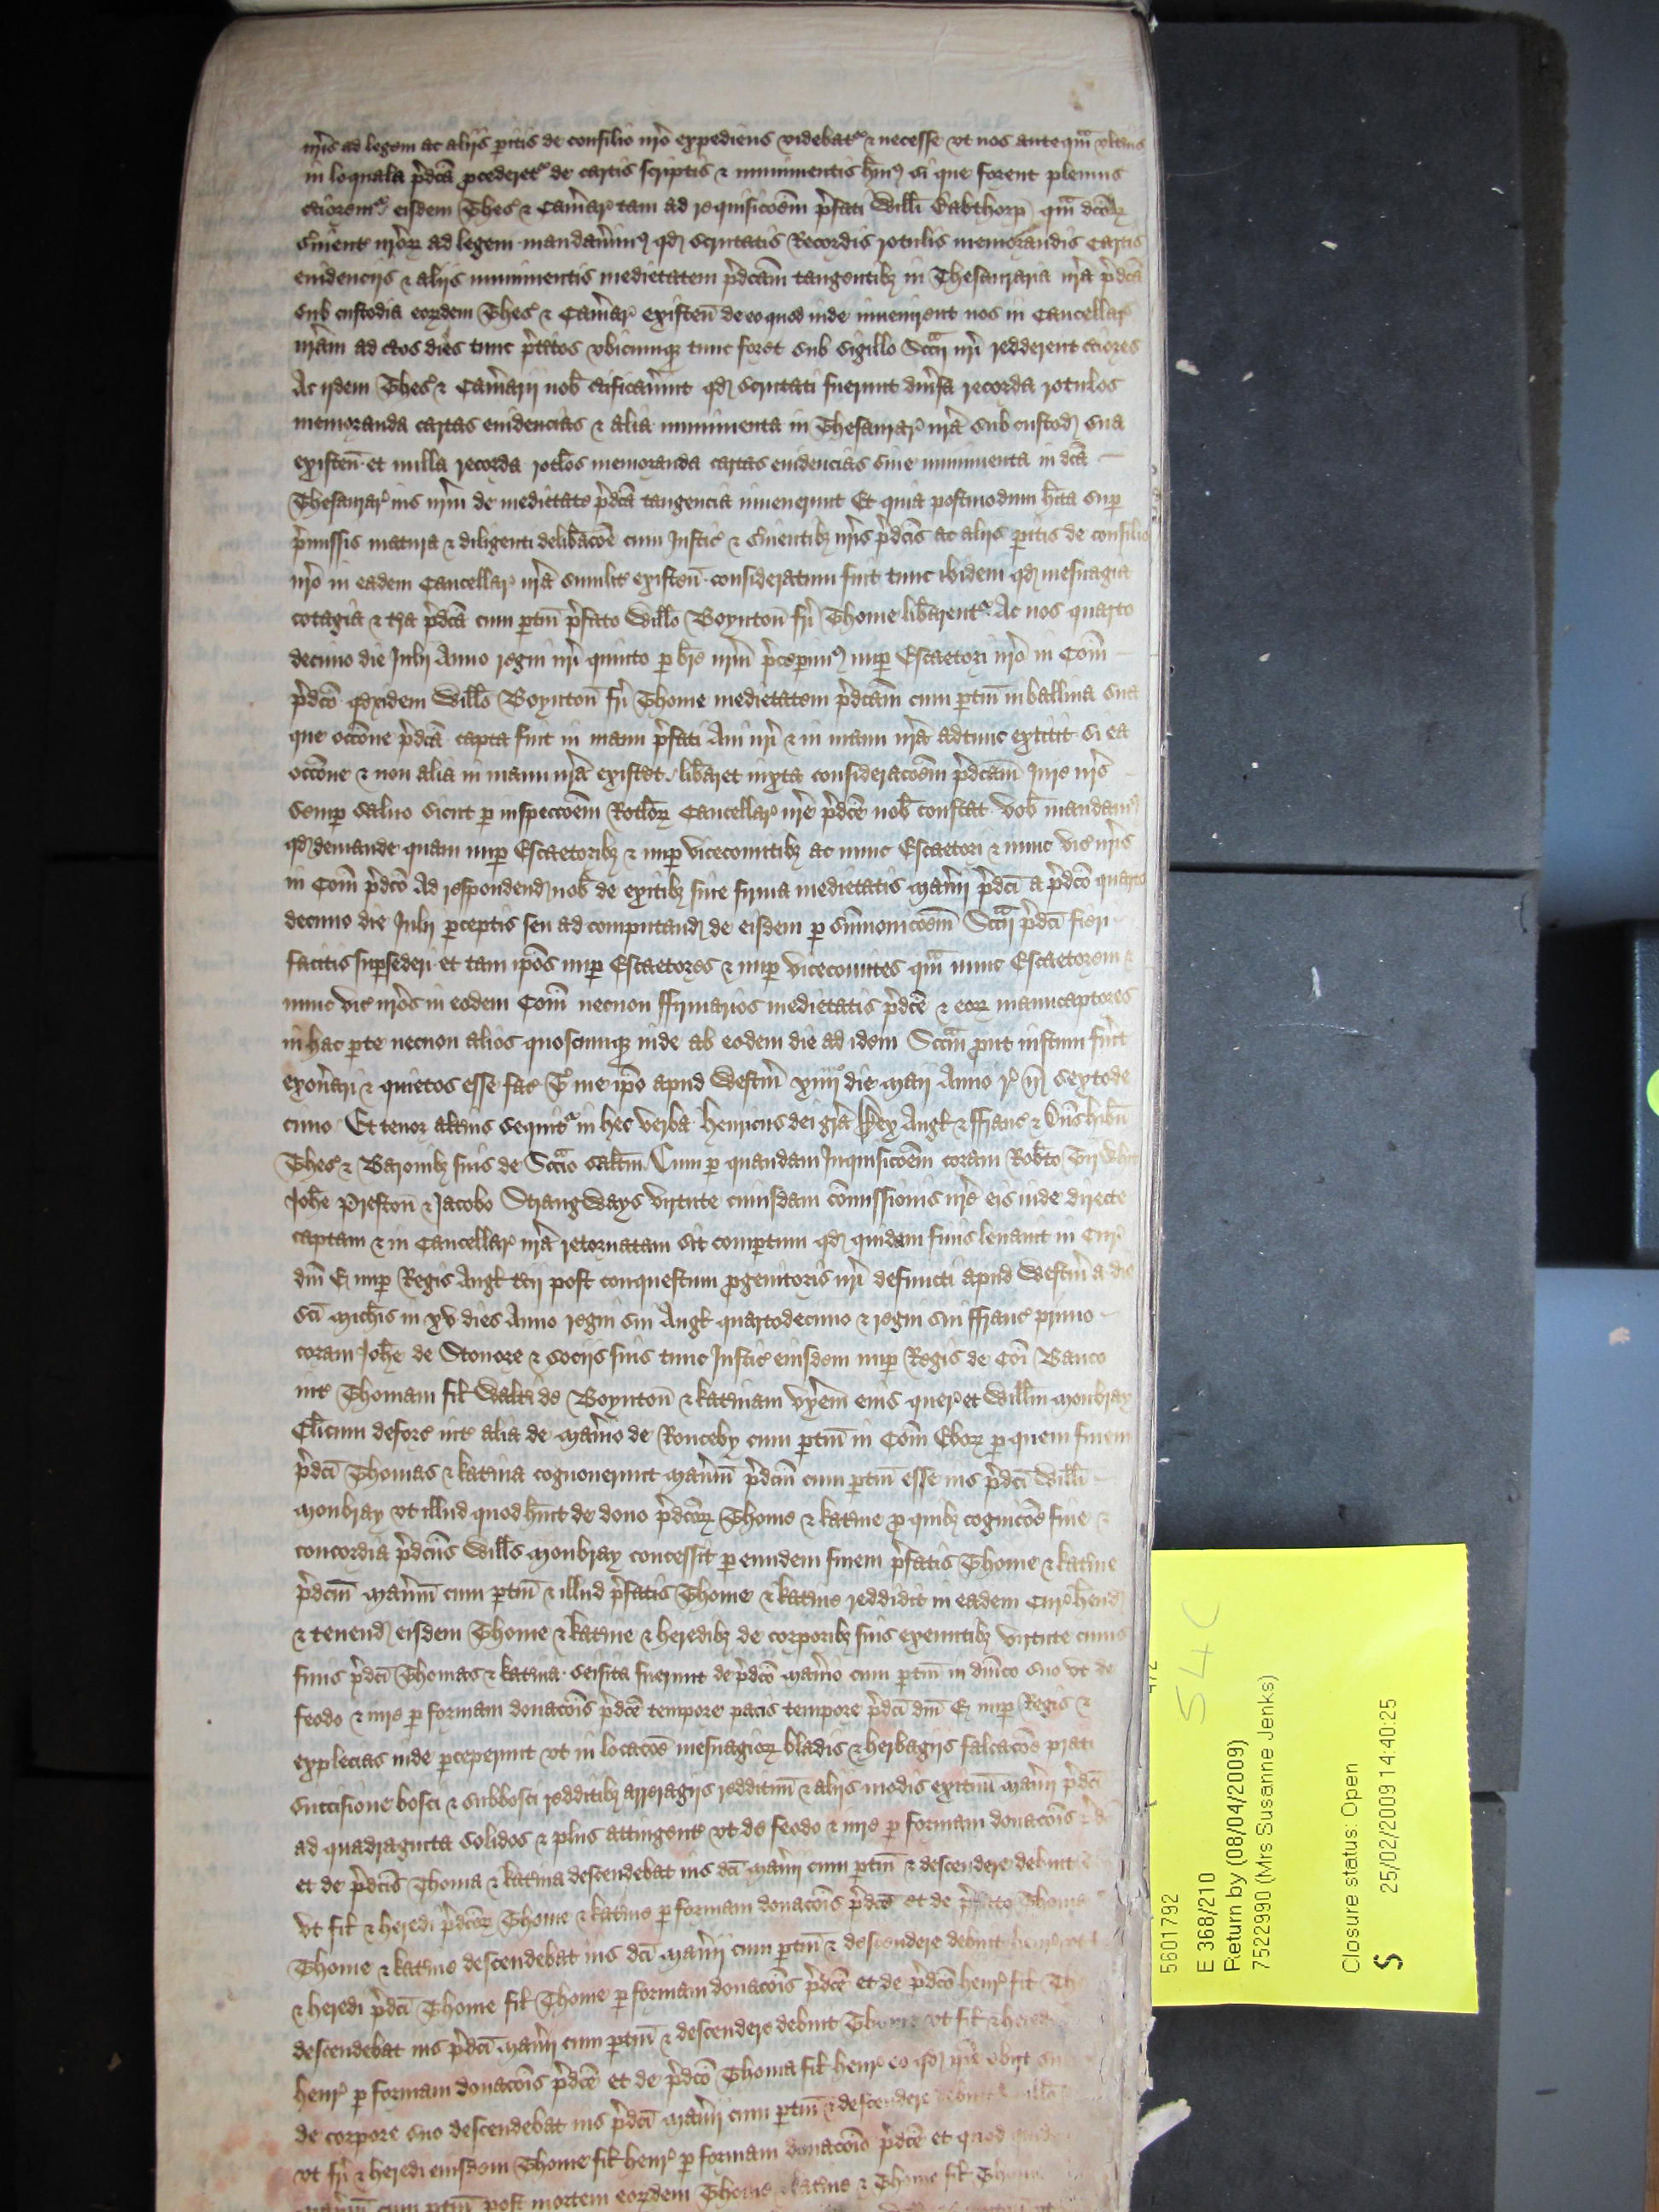 nr̃is ad legem ac aliis p̱itis de consilio nr̃o expediens videbatr᷑ & necesse vt nos anteqᵃm vlterius
in loquela p̃dc̃a ꝓcederetr᷑ de cartis scriptis & munimentis hm̃oi si que forent plenius
c̃tiorem᷑ eisdem Thes᷑ & Cam̃ar᷑ tam ad requisic̃oem p̃fati Willi Babthorp qᵃm dc̃oꝝ
s̃uient nr̃oꝝ ad legem mandauim᷑ qd̛ scrutatis Recordis rotulis memorandis Cartis
euidencijs & alijs munimentis medietatem p̃dc̃am tangentibꝫ in Thesauraria nr̃a p̃dc̃a
sub custodia eoꝝdem Thes᷑ & Cam̃ar᷑ existen̄ de eo quod inde inuenirent nos in Cancellar᷑
nr̃am ad c̃tos dies tunc p̃t̃itos vbicumqꝫ tunc foret sub sigillo Scc̃ii nr̃i redderent c̃tiores
Ac ijdem Thes᷑ & Cam̃arij nob̃ c̃tificauerunt qd̛ scrutati fuerunt diũsa recorda rotulos
memoranda cartas euidencias & alia munimenta in Thesaurar᷑ nr̃a sub custod̛ sua
existen̄ et nulla recorda rotlos memoranda cartas euidencias siue munimenta in dc̃a
Thesaurar᷑ ius nr̃m de medietate p̃dc̃a tangencia inuenerunt Et quia postmodum h̃ita sup̱
p̃missis matura & diligenti delib̃ac̃oe cum Justic᷑ & s̃uientibꝫ nr̃is p̃dc̃is ac alijs p̱itis de consilio
nr̃o in eadem Cancellar᷑ nr̃a similit᷑ existen̄ consideratum fuit tunc ibidem qd̛ mesuagia
cotagia & t̃ra p̃dc̃a cum p̱tin̄ p̃fato Willo Boynton̄ fr̃i Thome lib̃arentr᷑ Ac nos quarto
decimo die Julij Anno regni nr̃i quinto p̱ br̃e nr̃m p̃cepimus nup̱ Escaetori nr̃o in Com̃
p̃dc̃o qd̛ eidem Willo Boynton̄ fr̃i Thome medietatem p̃dc̃am cum p̱tin̄ in balliua sua
que occ̃one p̃dc̃a capta fuit in manu p̃fati Aui nr̃i & in manu nr̃a adtunc extitit si ea
occ̃one & non alia in manu nr̃a existet lib̃aret iuxta considerac̃oem p̃dc̃am Jure nr̃o
semp̱ saluo sicut p̱ inspecc̃oem Rotloꝝ Cancellar᷑ nr̃e p̃dc̃e nob̃ constat vob̃ mandam᷑
qd̛ demande quam nup̱ Escaetoribꝫ & nup̱ vicecomitibꝫ ac nunc Escaetori & nunc vic᷑ nr̃is
in Com̃ p̃dc̃o Ad respondend̛ nob̃ de exitibꝫ siue firma medietatis Man̄ij p̃dc̃i a p̃dc̃o quarto
decimo die Julij p̱ceptis seu ad computand̛ de eisdem p̱ sum̃onic̃oem Scc̃ij p̃dc̃i fieri
facitis sup̱sederi et tam ip̃os nup̱ Escaetores & nup̱ vicecomites qᵃm nunc Escaetorem &
nunc vic᷑ nr̃os in eodem Com̃ necnon ffirmarios medietatis p̃dc̃e & eoꝝ manucaptores
in hac p̱te necnon alios quoscumqꝫ inde ab eodem die ad idem Scc̃m ꝓut iustum fũit
exon̄ari & quietos esse fac᷑ T᷑ me ip̃o apud Westm̃ xiiij die Maij Anno r᷑ nr̃i sextode
cimo Et tenor alt̃ius sequitr᷑ in hec verba Henricus dei gr̃a Rex Angl & ffranc᷑ & Dn̄s hib̃n
Thes᷑ & Baronibꝫ suis de Scc̃io salt̃m Cum p̱ quandam Inquisic̃oem coram Rob̃to Tirwhit
Joh̃e Preston̄ & Jacobo Strangways virtute cuiusdam com̃issionis nr̃e eis inde directe
captam & in Cancellar᷑ nr̃a retornatam sit comp̱tum qd̛ quidam finis leuauit in Cur᷑
dn̄i E nup̱ Regis Angl t̃cij post conquestum ꝓgenitoris nr̃i defuncti apud Westm̃ a die
sc̃i Mich̃is in xv dies Anno regni sui Angl quartodecimo & regni sui ffranc᷑ primo
coram Joh̃e de Stonore & socijs suis tunc Justic᷑ eiusdem nup̱ Regis de Co͠i Banco
int᷑ Thomam fil Walt̃i de Boynton̄ & kat̃inam vx̃em eius quer᷑ et Willm Moubray
Cl̃icum deforc᷑ int᷑ alia de Man̄io de Rouceby cum p̱tin̄ in Com̃ Eboꝝ p̱ quem finem
p̃dc̃i Thomas & kat̃ina cognouerunt Man̄ium p̃dc̃m cum p̱tin̄ esse ius p̃dc̃i Willi
Moubray vt illud quod h̃uit de dono p̃dc̃oꝝ Thome & kat̃ine ꝓ quibꝫ cognic̃oe fine &
concordia p̃dc̃us Wills Moubray concessit p̱ eundem finem p̃fatis Thome & kat̃ine
p̃dc̃m Man̄ium cum p̱tin̄ & illud p̃fatis Thome & kat̃ine reddidit in eadem Cur᷑ h̃end̛
& tenend̛ eisdem Thome & kat̃ine & heredibꝫ de corporibꝫ suis exeuntibꝫ virtute cuius
finis p̃dc̃i Thomas & kat̃ina seisita fuerunt de p̃dc̃o Man̄io cum p̱tin̄ in dn̄ico suo vt de
feodo & iure p̱ formam donac̃ois p̃dc̃e tempore pacis tempore p̃dc̃i dn̄i E nup̱ Regis &
explecias inde p̱ceperunt vt in locac̃oe mesuagioꝝ bladis & herbagijs falcac̃oe prati
succisione bosci & subbosci redditibꝫ arreragijs reddituū & alijs modis exituū Man̄ij p̃dc̃i
ad quadraginta solidos & plus attingent᷑ vt de feodo & iure p̱ formam donac̃ois
et de p̃dc̃is Thoma & kat̃ina descendebat ius dc̃i Man̄ij cum p̱tin̄ & descendere debuit
vt fil & heredi p̃dc̃oꝝ Thome & kat̃ine p̱ formam donac̃ois p̃dc̃e et de Thoma
Thome & kat̃ine descendebat ius dc̃i Man̄ij cum p̱tin̄ & descendere debuit henr᷑ vt
& heredi p̃dc̃i Thome fil Thome p̱ formam donac̃ois p̃dc̃e et de p̃dc̃o henr᷑ fil
descendebat ius p̃dc̃i Man̄ij cum p̱tin̄ & descendere debuit Thome vt fil & heredi
henr᷑ p̱ formam donac̃ois p̃dc̃e et de p̃dc̃o Thoma fil henr᷑ eo qd̛ ip̃e obijt
de corpore suo descendebat ius p̃dc̃i Man̄ij cum p̱tin̄ & descendere debuit
vt fr̃i & heredi eiusdem Thome fil henr᷑ p̱ formam donac̃ois p̃dc̃e et quod
cum p̱tin̄ post mortem eoꝝdem Thome kat̃ine & Thome fil
54C
5601792
E 368/210
Return by (08/04/2009)
7522990 (Mrs Susanne Jenks)
Closure status: Open
S 25/02/2009 14:40:25